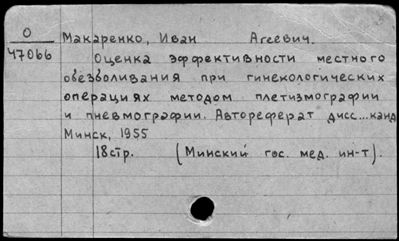 О
47066
Макаренко, Иван Агеевич.
Оценка эффективности местного
обезболивания при гинекологических
операциях методом плетизмографии
и пневмографии. Автореферат дисс...канд
Минск, 1955
18стр. (Минский гос. мед. ин-т).